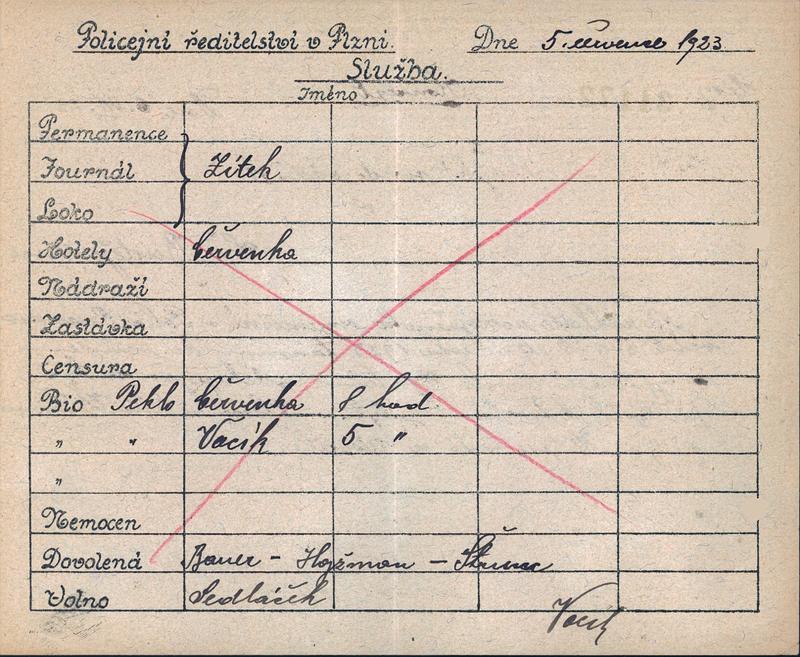 Policejní ředitelství v Plzni. Dne 5. července 1923
Služba.
Jméno
Permanence
Journál Zítek
Loko
Hotely Červenka
Nádraží
Zastávka
Censura
Bio Peklo Červenka 8 hod.
„ „ Vacík 5 „
„
Nemocen
Dovolená Bauer - Hojžman -
Volno Sedláček
Vacík